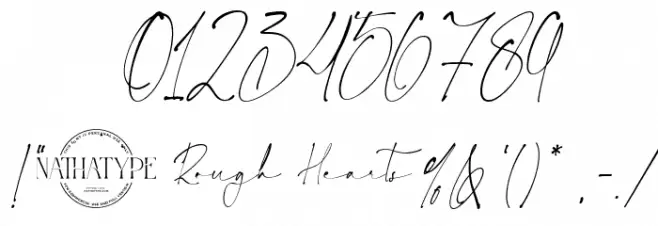 0123456789
!" NATHATYPE Rough Hearts % & '()* , - . /